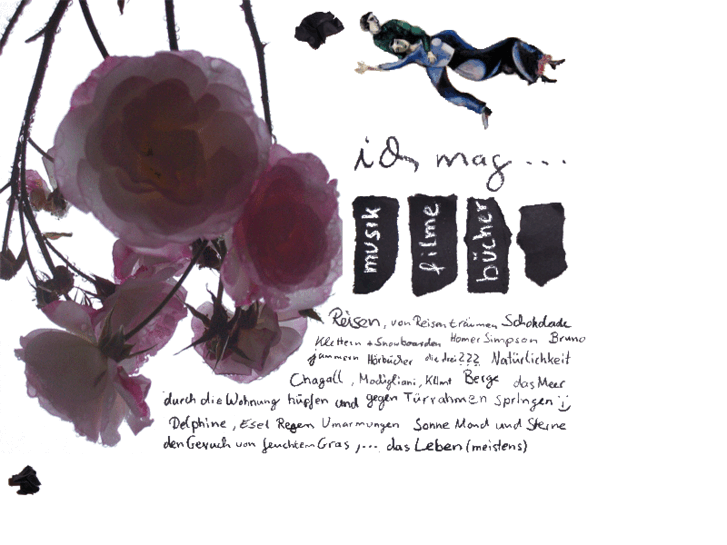 ich mag ...
musik
filme
bücher
Reisen, von Reisen träumen Schokolade
Klettern + Snowboarden Homer Simpson Bruno
jammern Hörbücher die drei??? Natürlichkeit
Chagall, Modigliani, Klimt Berge das Meer
durch die Wohnung hüpfen und gegen Türrahmen springen :)
Delphine, Esel Regen Umarmungen Sonne Mond und Sterne
den Geruch von feuchtem Gras, ... das Leben (meistens)